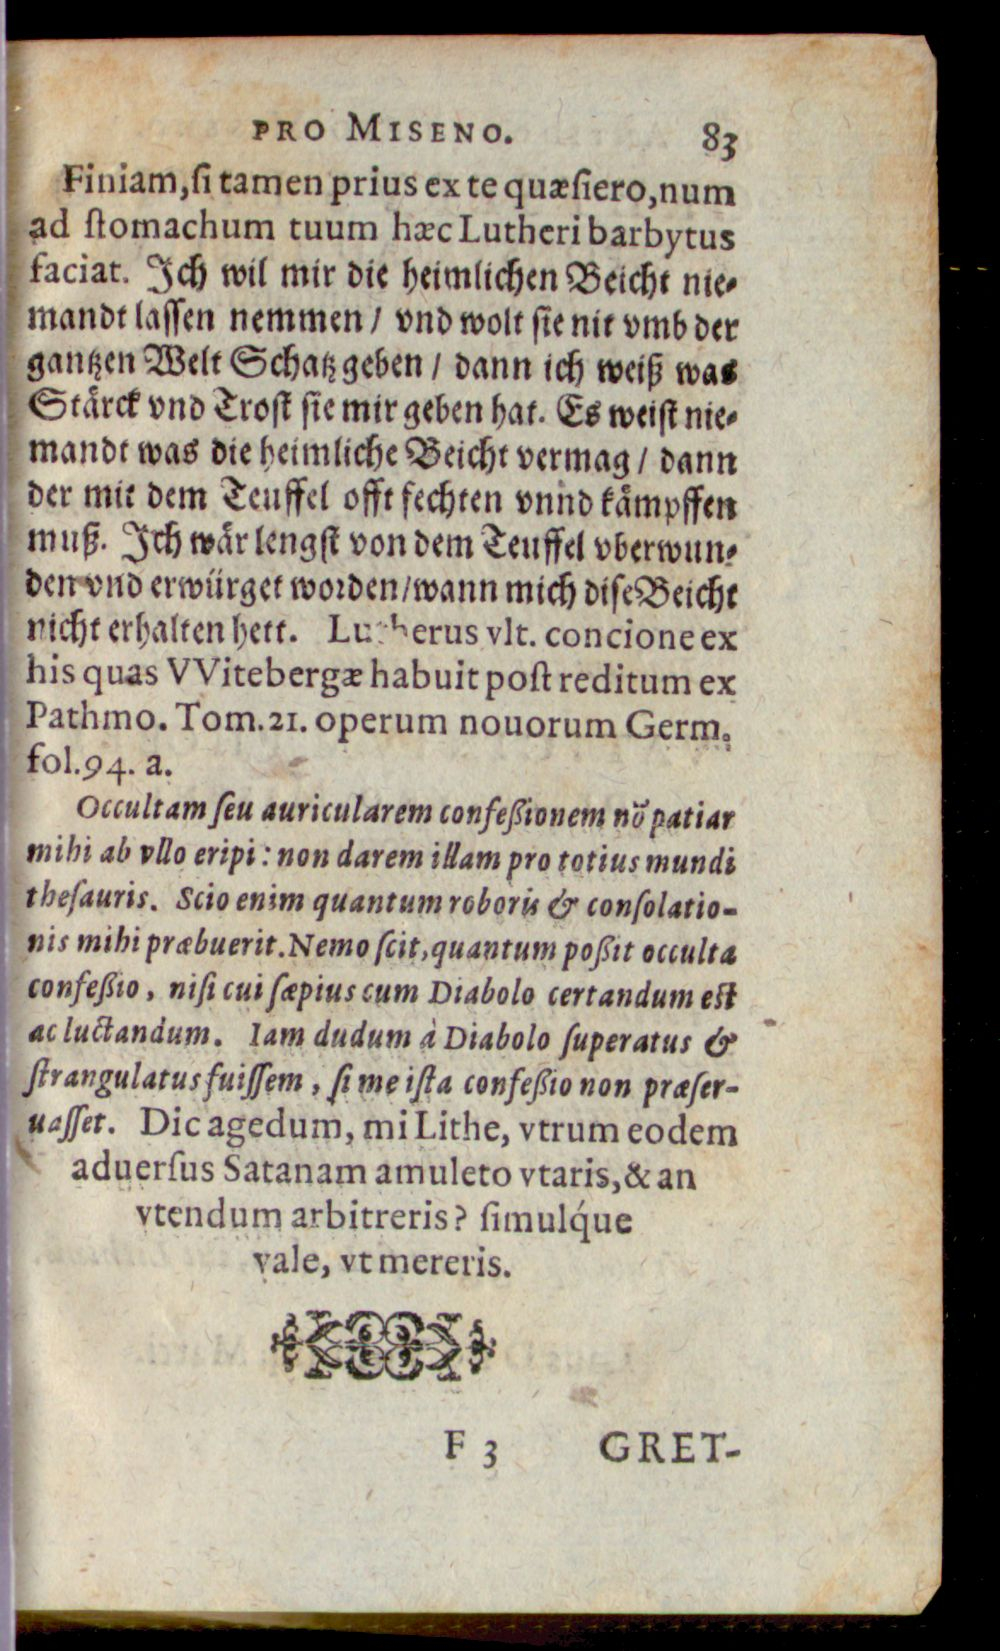 PRO MISENO. 83
Finiam, si tamen prius ex te quæsiero, num
ad stomachum tuum hæc Lutheri barbytus
faciat. Ich wil mir die heimlichen Beicht nie-
mandt lassen nemmen / vnd wolt sie nit vmb der
gantzen Welt Schatz geben / dann ich weiß was
Stärck vnd Trost sie mir geben hat. Es weist nie-
mandt was die heimliche Beicht vermag / dann
der mit dem Teuffel offt fechten vnnd kämpffen
muß. Ich wär lengst von dem Teuffel vberwun-
den vnd erwürget worden / wann mich dise Beicht
nicht erhalten hett. Lutherus vlt. concione ex
his quas VVitebergæ habuit post reditum ex
Pathmo. Tom. 21. operum nouorum Germ.
fol. 94. a.
Occultam seu auricularem confeßionem nō patiar
mihi ab vllo eripi: non darem illam pro totius mundi
thesauris. Scio enim quantum roboris & consolatio-
nis mihi præbuerit. Nemo scit, quantum poßit occulta
confeßio, nisi cui sæpius cum Diabolo certandum est
ac luctandum. Iam dudum à Diabolo superatus &
strangulatus fuissem, si me ista confeßio non præser-
uasset. Dic agedum, mi Lithe, vtrum eodem
aduersus Satanam amuleto vtaris, & an
vtendum arbitreris? simulq́ue
vale, vt mereris.
F 3 GRET-